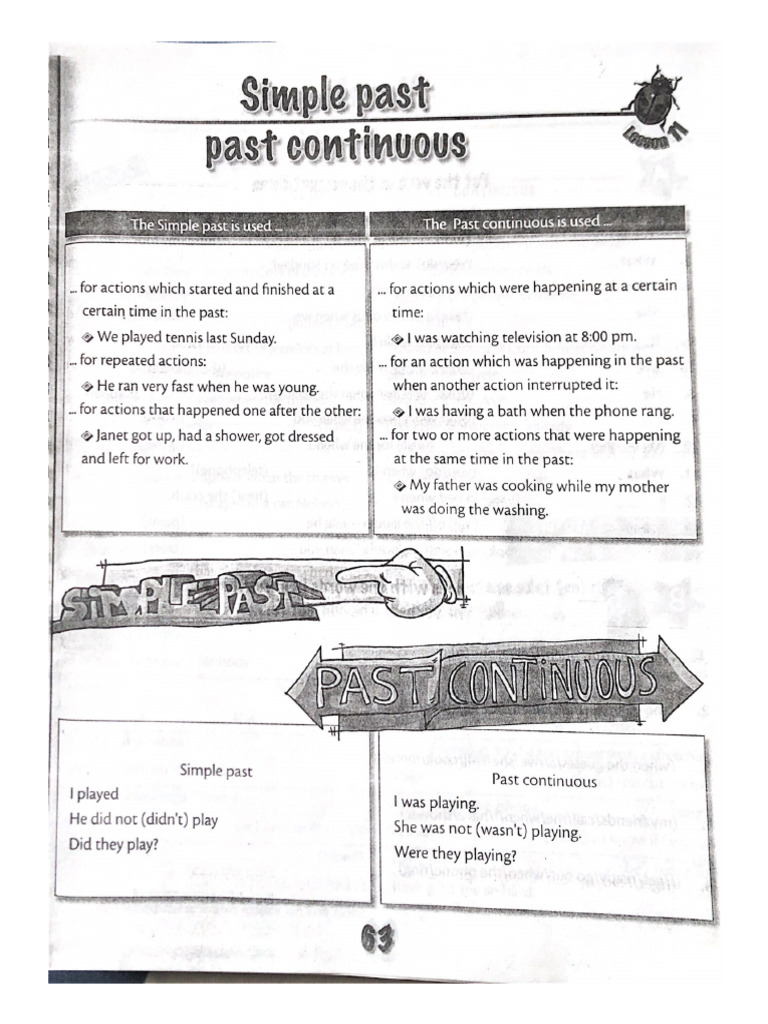 Simple past
past continuous
Lesson 11
The Simple past is used ...
... for actions which started and finished at a
certain time in the past:
We played tennis last Sunday.
... for repeated actions:
He ran very fast when he was young.
... for actions that happened one after the other:
Janet got up, had a shower, got dressed
and left for work.
The Past continuous is used ...
... for actions which were happening at a certain
time:
I was watching television at 8:00 pm.
... for an action which was happening in the past
when another action interrupted it:
I was having a bath when the phone rang.
... for two or more actions that were happening
at the same time in the past:
My father was cooking while my mother
was doing the washing.
SIMPLE PAST
PAST CONTINUOUS
Simple past
I played
He did not (didn't) play
Did they play?
Past continuous
I was playing.
She was not (wasn't) playing.
Were they playing?
63